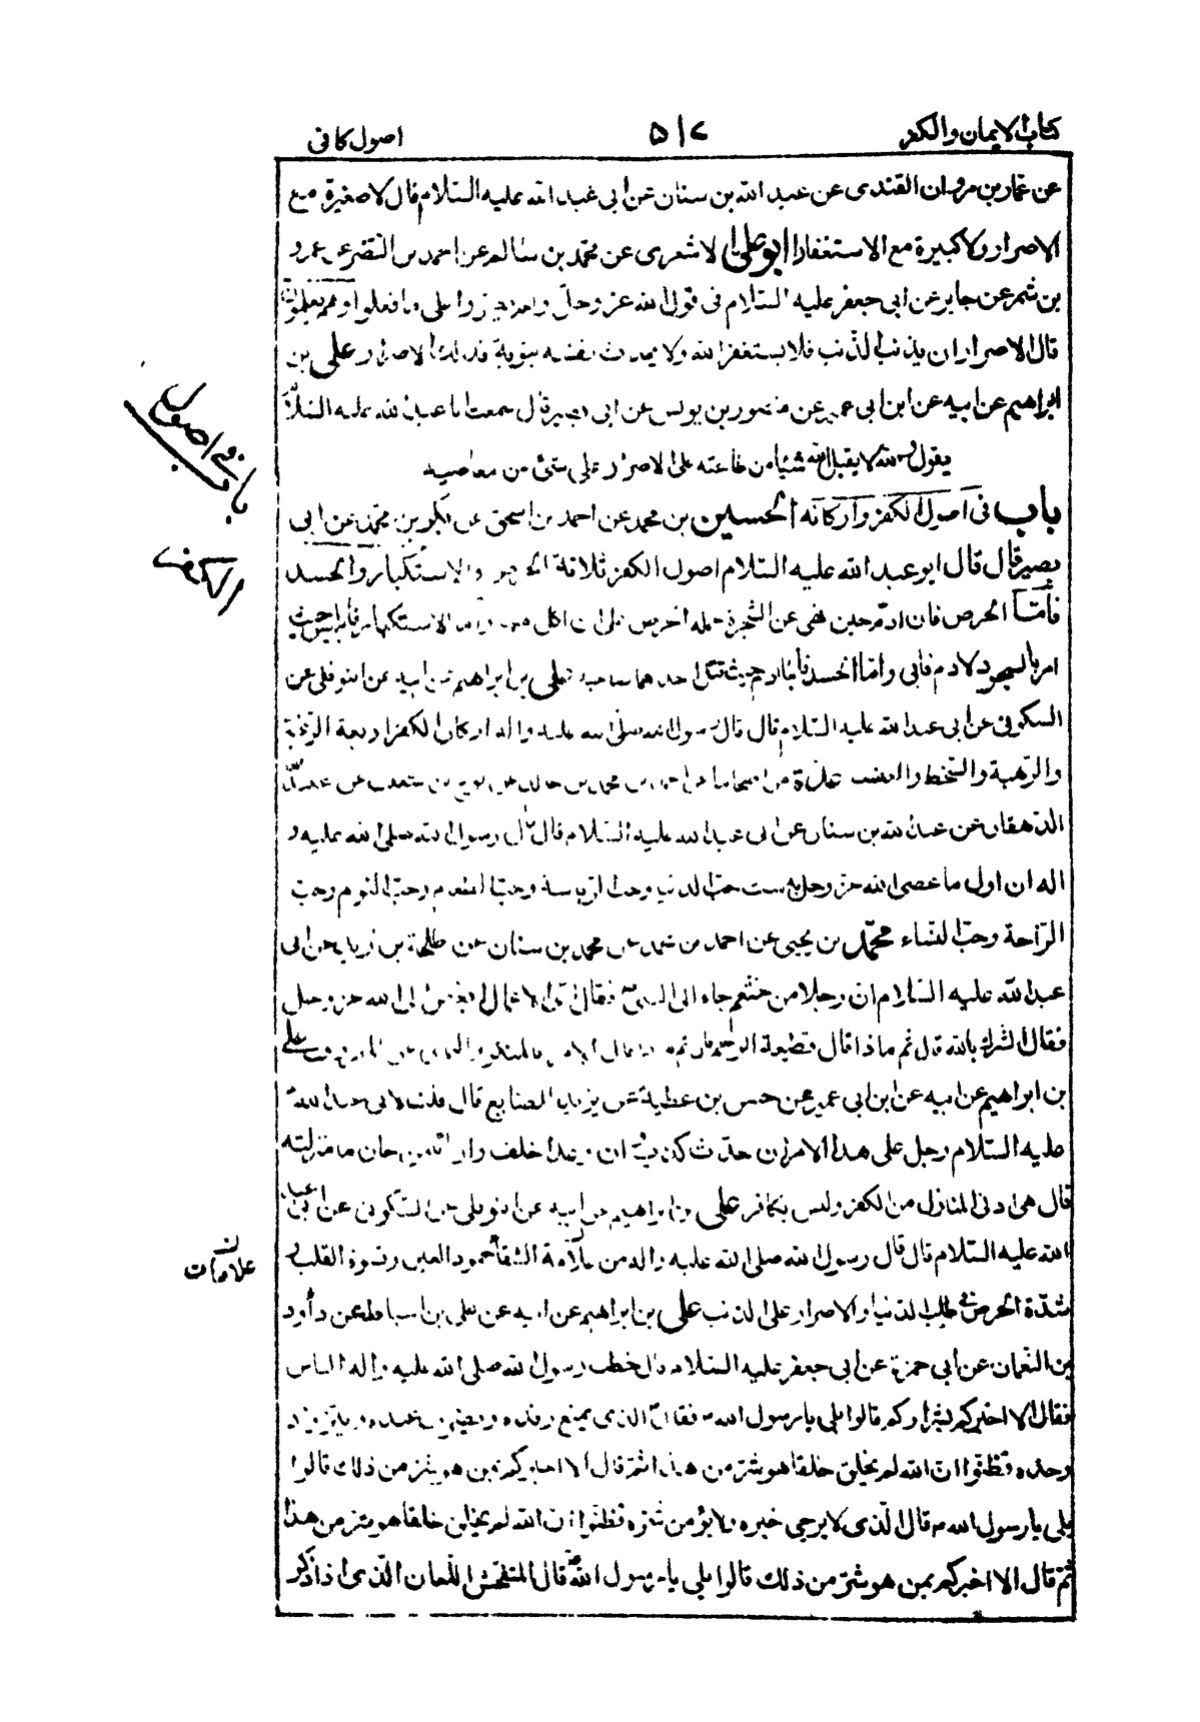 كتاب الايمان والكفر
٥١٧
اصول كافى
عن عمار بن مروان القندى عن عبد الله بن سنان عن ابى عبد الله عليه السلام قال لا صغيرة مع
الاصرار ولا كبيرة مع الاستغفار ابو على الاشعرى عن محمد بن سالم عن احمد بن النضر عن عمرو
بن شمر عن جابر عن ابى جعفر عليه السلام فى قول الله عز وجل ولم يصروا على ما فعلوا وهم يعلمون
قال الاصرار ان يذنب الذنب فلا يستغفر الله ولا يحدث نفسه بتوبة فذلك الاصرار على بن
ابراهيم عن ابيه عن ابن ابى عمير عن منصور بن يونس عن ابى بصير قال سمعت ابا عبد الله عليه السلام
يقول لا والله لا يقبل الله شيئا من طاعته على الاصرار على شئ من معاصيه
باب فى اصول الكفر واركانه الحسين بن محمد عن احمد بن اسحق عن بكر بن محمد عن ابى
بصير قال قال ابو عبد الله عليه السلام اصول الكفر ثلاثة الحرص والاستكبار والحسد
فأمّا الحرص فان ادم حين نهى عن الشجرة حمله الحرص على ان اكل منها واما الاستكبار فابليس حيث
امر بالسجود لادم فابى واما الحسد فابنا ادم حيث قتل احدهما صاحبه على بن ابراهيم عن ابيه عن النوفلى عن
السكونى عن ابى عبد الله عليه السلام قال قال رسول الله صلى الله عليه واله اركان الكفر اربعة الرغبة
والرهبة والسخط والغضب عدة من اصحابنا عن احمد بن محمد بن خالد عن نوح بن شعيب عن عبد الله
الدهقان عن عبد الله بن سنان عن ابى عبد الله عليه السلام قال قال رسول الله صلى الله عليه و
اله ان اول ما عصى الله عز وجل به ست حب الدنيا وحب الرياسة وحب الطعام وحب النوم وحب
الراحة وحب النساء محمد بن يحيى عن احمد بن محمد عن محمد بن سنان عن طلحة بن زيد عن ابى
عبد الله عليه السلام ان رجلا من خثعم جاء الى النبى ص فقال اى الاعمال ابغض الى الله عز وجل
فقال الشرك بالله قال ثم ماذا قال قطيعة الرحم قال ثم ماذا قال الامر بالمنكر والنهى عن المعروف على
بن ابراهيم عن ابيه عن ابن ابى عمير عن حسن بن عطية عن يزيد الصايغ قال قلت لابى عبد الله
عليه السلام رجل على هذا الامر ان حدث كذب وان وعد اخلف وان ائتمن خان ما منزلته
قال هى ادنى المنازل من الكفر وليس بكافر على بن ابراهيم عن ابيه عن النوفلى عن السكونى عن ابى عبد
الله عليه السلام قال قال رسول الله صلى الله عليه واله من علامة الشقاء جمود العين وقسوة القلب و
شدة الحرص فى طلب الدنيا والاصرار على الذنب على بن ابراهيم عن ابيه عن على بن اسباط عن داود
بن النعمان عن ابى حمزة عن ابى جعفر عليه السلام قال خطب رسول الله صلى الله عليه واله الناس
فقال الا اخبركم بشراركم قالوا بلى يا رسول الله ص فقال الذى يمنع رفده ويضرب عبده ويتزود
وحده فظنوا ان الله لم يخلق خلقا هو شر من هذا ثم قال الا اخبركم بمن هو شر من ذلك قالوا
بلى يا رسول الله ص قال الذى لا يرجى خيره ولا يؤمن شره فظنوا ان الله لم يخلق خلقا هو شر من هذا
ثم قال الا اخبركم بمن هو شر من ذلك قالوا بلى يا رسول الله قال المتفحش اللعان الذى اذا ذكر
باب فى اصول
الكفر
علامات